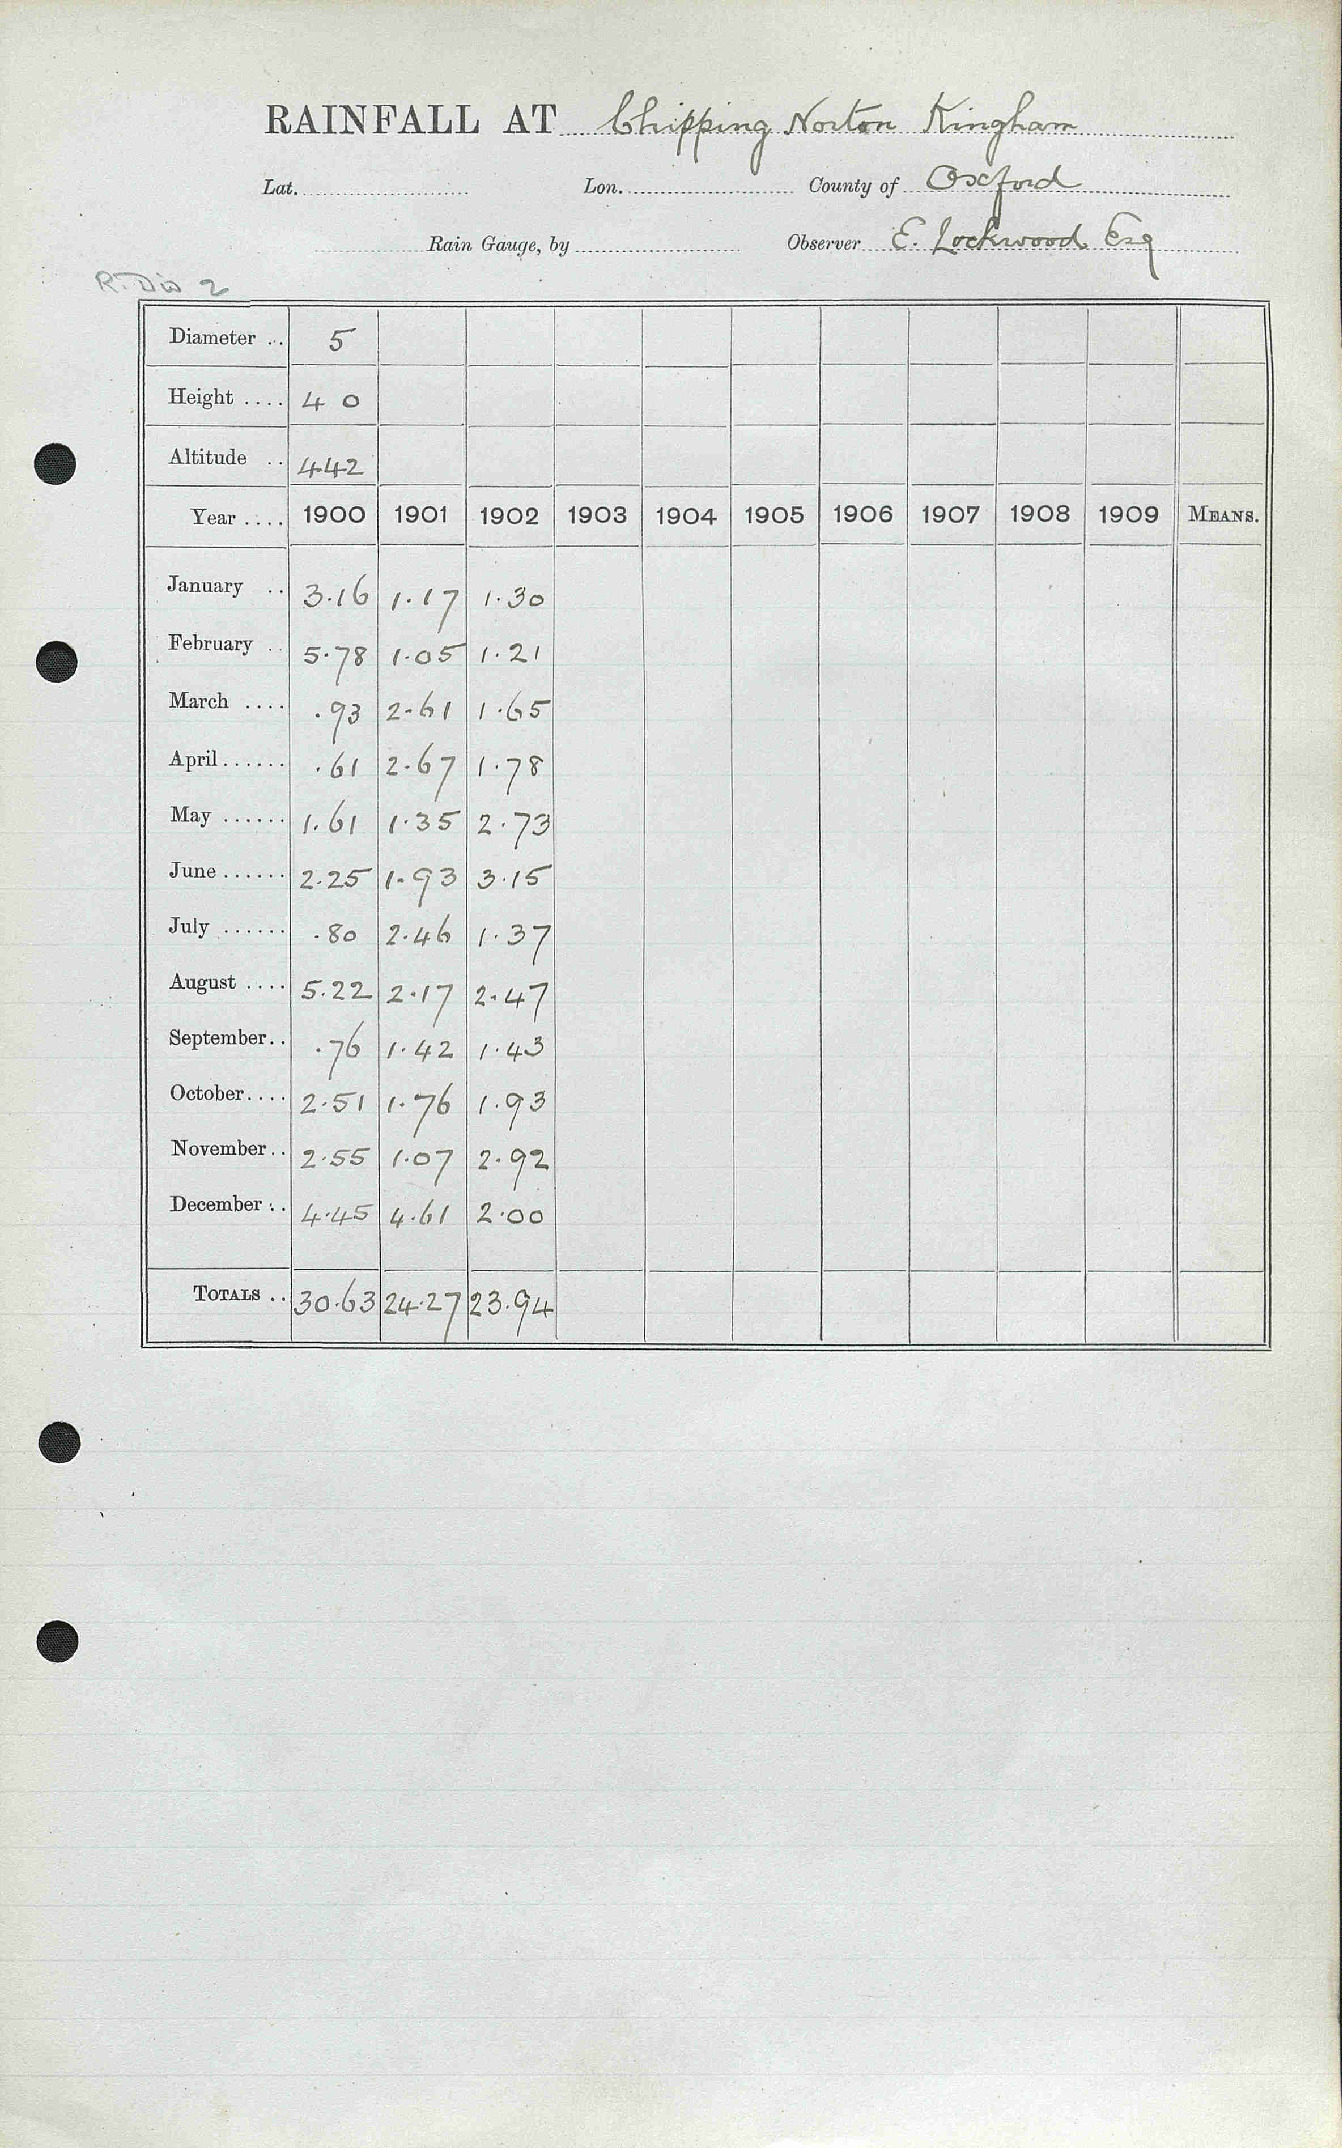 RAINFALL AT Chipping Norton Kingham
Lat. Lon. County of Oxford
Rain Gauge, by Observer E. Lockwood Esq
R. Dis 2
Diameter .. 5
Height .... 4 0
Altitude .. 442
Year .... 1900 1901 1902 1903 1904 1905 1906 1907 1908 1909 MEANS.
January .. 3.16 1.17 1.30
February .. 5.78 1.05 1.21
March .... .93 2.61 1.65
April...... .61 2.67 1.78
May ...... 1.61 1.35 2.73
June...... 2.25 1.93 3.15
July ...... .80 2.46 1.37
August .... 5.22 2.17 2.47
September.. .76 1.42 1.43
October.... 2.51 1.76 1.93
November.. 2.55 1.07 2.92
December .. 4.45 4.61 2.00
TOTALS .. 30.63 24.27 23.94